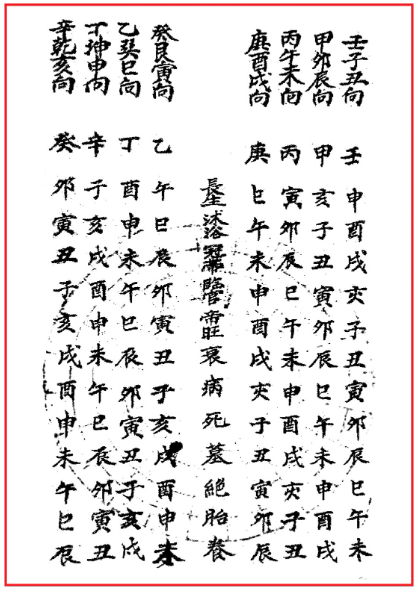 壬子丑向 壬申酉戌亥子丑寅卯辰巳午未
甲卯辰向 甲亥子丑寅卯辰巳午未申酉戌
丙午未向 丙寅卯辰巳午未申酉戌亥子丑
庚酉戌向 庚巳午未申酉戌亥子丑寅卯辰
長生沐浴冠帶臨官帝旺衰病死墓絕胎養
癸艮寅向 乙午巳辰卯寅丑子亥戌酉申未
乙巽巳向 丁酉申未午巳辰卯寅丑子亥戌
丁坤申向 辛子亥戌酉申未午巳辰卯寅丑
辛乾亥向 癸卯寅丑子亥戌酉申未午巳辰